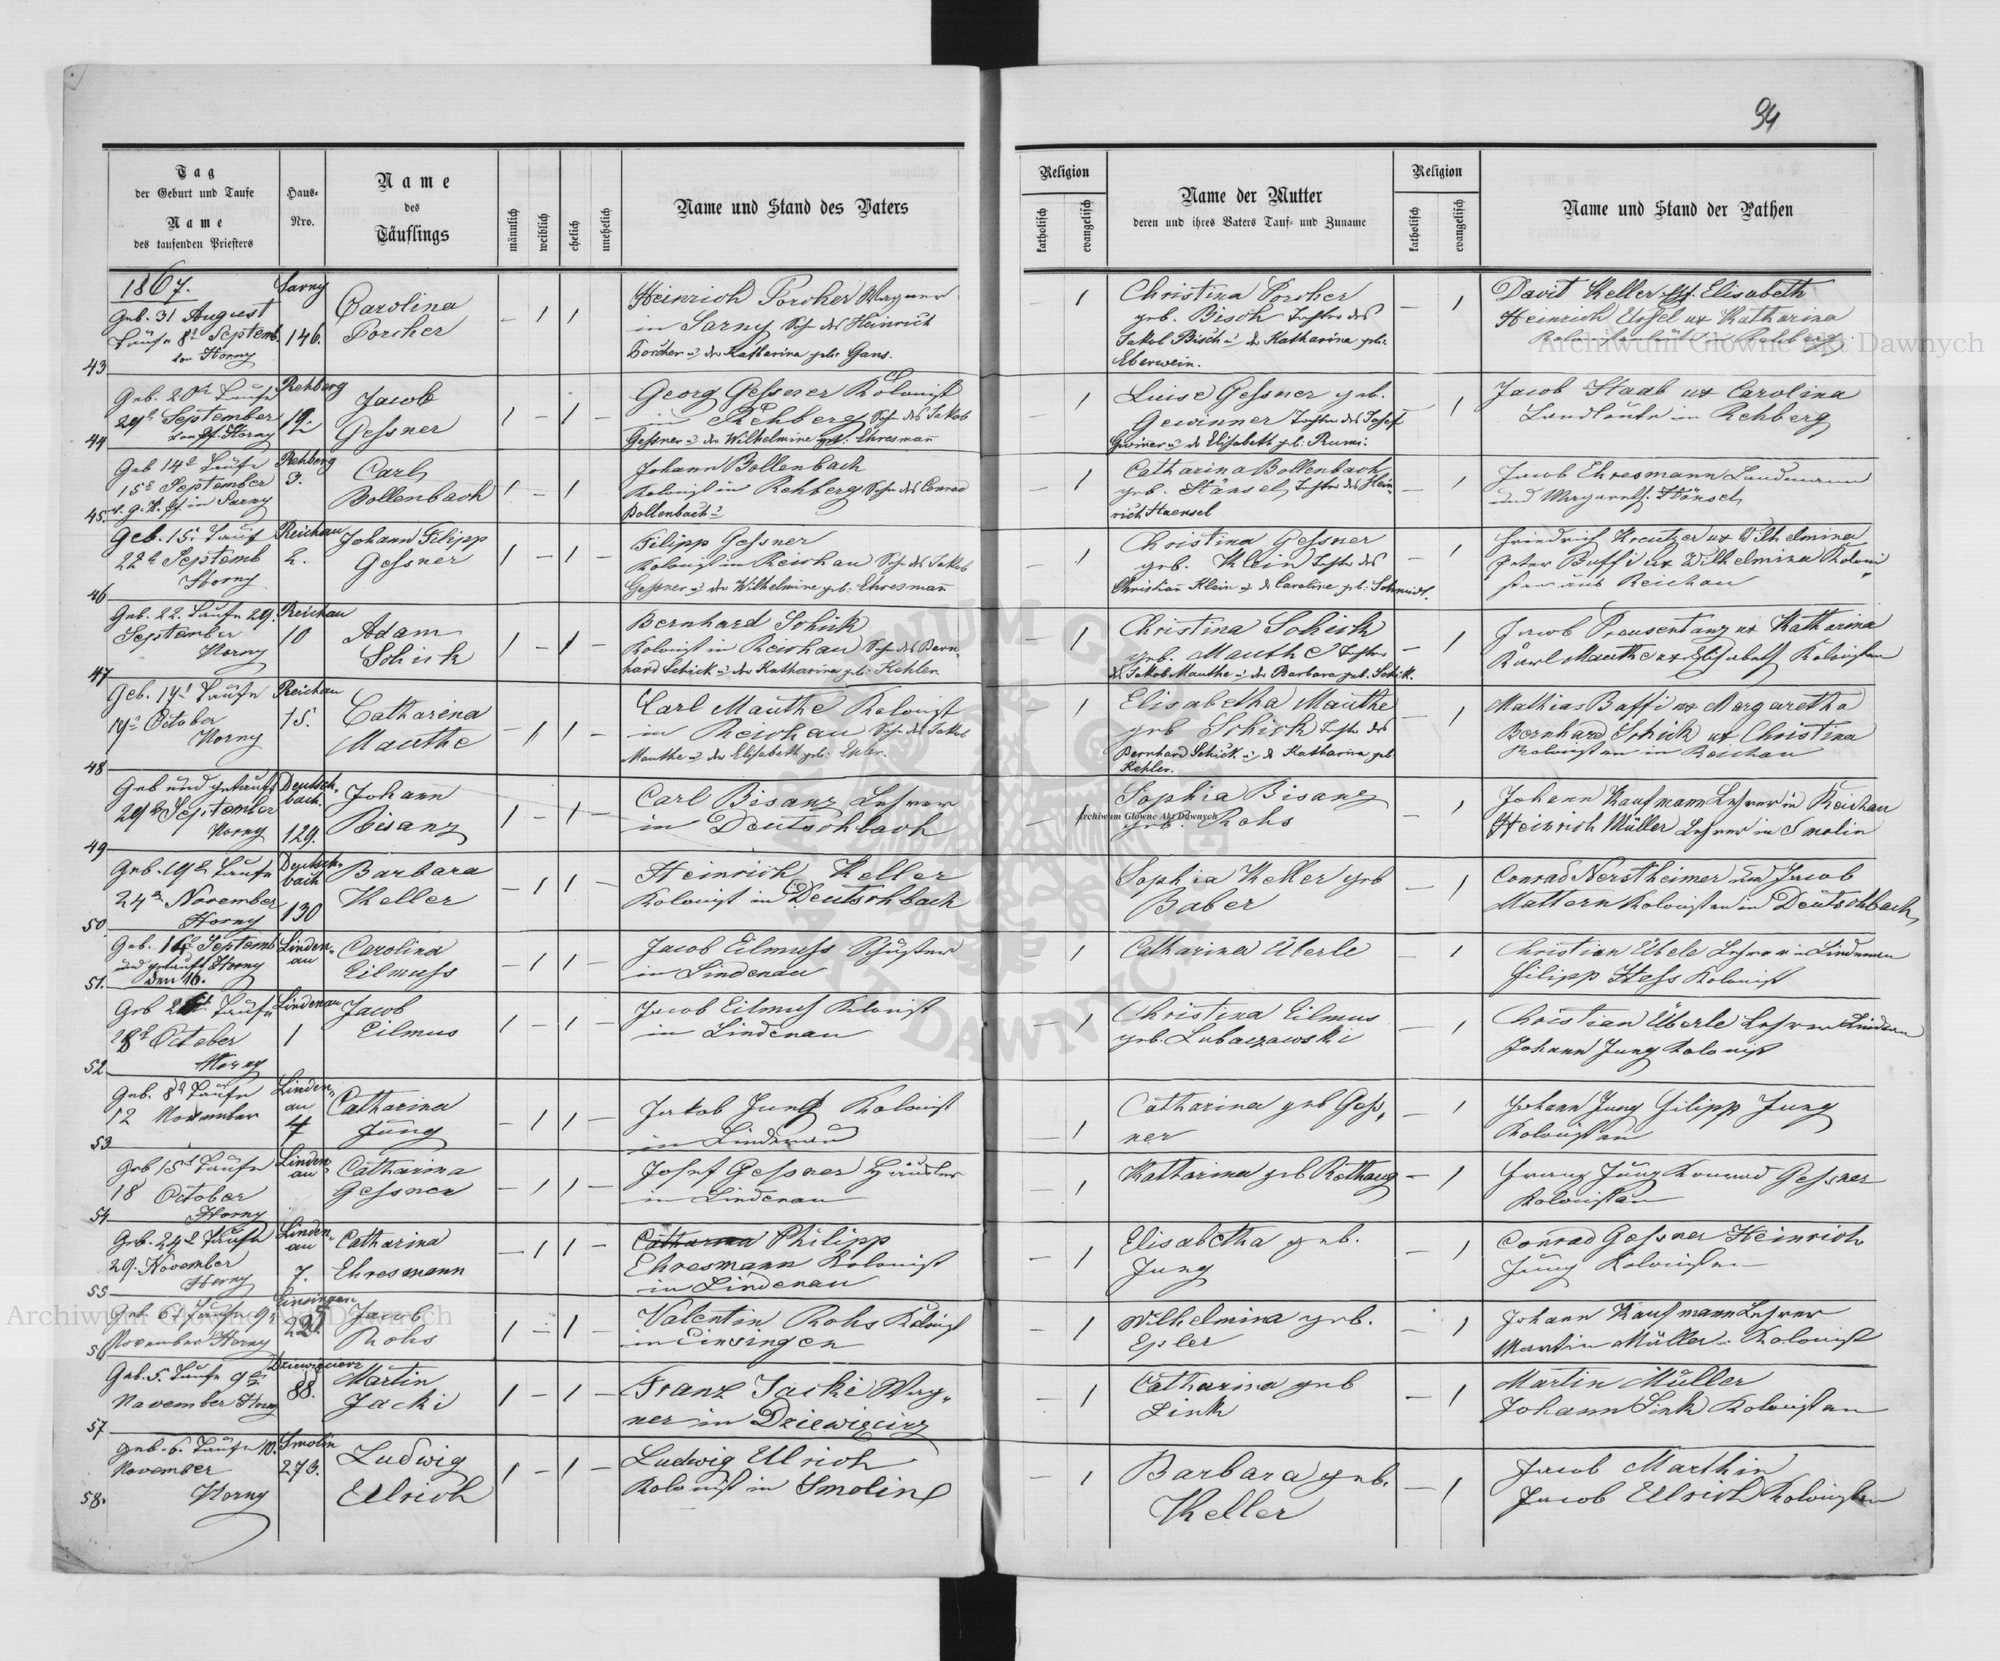 94
Tag
der Geburt und Taufe
Name
des taufenden Priesters
Haus-
Nro.
Name
des
Täuflings
männlich
weiblich
ehelich
unehelich
Name und Stand des Vaters
Religion
katholisch
evangelisch
Name der Mutter
deren und ihres Vaters Tauf- und Zuname
Religion
katholisch
evangelisch
Name und Stand der Pathen
1867.
43
Geb. 31 August
Taufe 8t Septemb.
von Horny
Sarny
146.
Carolina
Porcher
– 1 1
Heinrich Porcher Wagner
in Sarny Sohn des Heinrich
Porcher u der Katharina geb: Gans.
– 1
Christina Porcher
geb. Bisch Tochter des
Jakob Bisch u d. Katharina geb:
Eberwein.
– 1
David Keller Elisabeth
Heinrich ux Katharina
in Rehberg
44
Geb. 20t Taufe
29t September
von Horny
Rehberg
19.
Jacob
Gessner
1 – 1 –
Georg Gessner Kolonist
in Rehberg Sohn des Jakob
Gessner u der Wilhelmine geb: Ehresmann
– 1
Luise Gessner geb.
Gewinner Tochter des Josef
Gewiner u d. Elisabeth geb: Rumi.
– 1
Jacob Staab ux Carolina
Landleute in Rehberg
45.
Geb 14t Taufe
15t September
in Sarny
Rehberg
3.
Carl
Bollenbach
1 – 1
Johann Bollenbach
Kolonist in Rehberg Sohn des Conrad
Bollenbach u
– 1
Catharina Bollenbach
geb. Hänsel, Tochter des Hein-
rich Haensel
– 1
Jacob Ehresmann Landmann
und Margareth: Hänsel
46
Geb. 15t Tauf
22t Septemb
Horny
Reichau
2.
Johann Filipp
Gessner
1 – 1
Filipp Gessner
Kolonist in Reichau Sohn des Jakob
Gessner u der Wilhelmine geb: Ehresmann
– 1
Christina Gessner
geb. Klein Tochter des
Christian Klein u d. Caroline geb: Schmidt.
– 1
Friedrich Kreutzer ux Wilhelmina
Peter Baffi ux Wilhelmina Koloni
sten aus Reichau
47
Geb. 22. Taufe 29.
September
Horny
Reichau
10
Adam
Schick
1 – 1
Bernhard Schick
Kolonist in Reichau Sohn des Bern-
hard Schick u der Katharina geb: Kehler
– 1
Christina Schick
geb. Mauthe Tochter
des Jakob Mauthe u der Barbara geb. Schick.
– 1
Jacob Preusentanz ux Katharina
Karl Mauthe ux Elisabeth Kolonisten
48
Geb. 14t Taufe
19t October
Horny
Reichau
15.
Catharina
Mauthe
– 1 1
Carl Mauthe Kolonist
in Reichau Sohn des Jakob
Mauthe u der Elisabeth geb: Epler.
– 1
Elisabetha Mauthe
geb Schick Tochter des
Bernhard Schick u d. Katharina geb
Kehler.
– 1
Mathias Baffi ux Margaretha
Bernhard Schick ux Christina
Kolonisten in Reichau
49
Geb und getauft
29ten September
Horny
Deutsch-
bach.
129.
Johann
Bisanz
1 – 1 –
Carl Bisanz Lehrer
in Deutschbach
–
Sophia Bisanz
geb. Rohs
– 1
Johann Kaufmann Lehrer in Reichau
Heinrich Müller Lehrer in Smolin
50
Geb. 19t Taufe
24ten November
Horny
Deutsch-
bach
130
Barbara
Keller
– 1 1 –
Heinrich Keller
Kolonist in Deutschbach
– 1
Sophia Keller geb
Baber
– 1
Conrad Nerstheimer und Jacob
Mattern Kolonisten in Deutschbach
51.
Geb. 16 Septemb
und getauft Horny
den 16.
Linden-
au
Carolina
Eilmuss
– 1 1 –
Jacob Eilmuss Schuster
in Lindenau
– 1
Catharina Überle
– 1
Christian Übele Lehrer in Lindenau
Filipp Hess Kolonist
52
Geb Taufe
28t October
Horny
Lindenau
1
Jacob
Eilmus
1 – 1 –
Jacob Eilmuss Kolonist
in Lindenau
– 1
Christina Eilmus
geb. Lubaczowski
– 1
Christian Überle Lehrer Lindenau
Johann Jung Kolonist
53
Geb. 8t Taufe
12 November
Linden-
au
4
Catharina
Jung
– 1 1 –
Jakob Jung Kolonist
in Lindenau
– 1
Catharina geb Gess-
ner
– 1
Johann Jung Filipp Jung
Kolonisten
54
Geb 15t Taufe
18 October
Horny
Linden-
au
Catharina
Gessner
– 1 1 –
Josef Gessner Häusler
in Lindenau
– 1
Katharina geb Rothaug
– 1
Franz Jung Konrad Gessner
Kolonisten
55
Geb. 24t Taufe
29. November
Horny
Linden-
au
7.
Catharina
Ehresmann
– 1 1 –
Catharina Philipp
Ehresmann Kolonist
in Lindenau
– 1
Elisabetha geb.
Jung
– 1
Conrad Gessner Heinrich
Jung Kolonisten
56
Geb. 6t Taufe 9t
November Horny
Einsingen
Jacob
Rohs
1 – 1 –
Valentin Rohs Kolonist
in Einsingen
– 1
Wilhelmina geb.
Epler
– 1
Johann Kaufmann Lehrer
Martin Müller Kolonist
57
Geb. 5. Taufe 9t
November Horny
Dziewięcierz
88.
Martin
Jacki
1 – 1 –
Franz Jacki Wag-
ner in Dziewięcirz
– 1
Catharina geb
Link
– 1
Martin Müller
Johann Link Kolonisten
58.
Geb. 6. Taufe 10.
November
Horny
Smolin
273.
Ludwig
Ulrich
1 – 1 –
Ludwig Ulrich
Kolonist in Smolin
– 1
Barbara geb.
Keller
– 1
Jacob Marthin
Jacob Ulrich Kolonisten
Archiwum Główne Akt Dawnych
Archiwum Główne Akt Dawnych
Archiwum Główne Akt Dawnych
ARCHIWUM GŁÓWNE AKT DAWNYCH